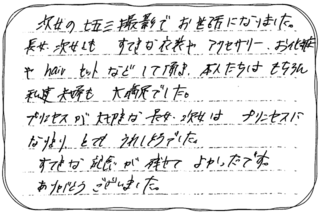 次女の七五三撮影でお世話になりました。
長女、次女とも すてきな衣装や アクセサリー、お化粧
や hair セットなどして頂き、本人たちは もちろん
私達夫婦も 大満足でした。
プリンセスが 大好きな 長女・次女は プリンセスに
なりきり とても うれしそうでした。
すてきな 記念が 残せて よかったです。
ありがとう ございました。